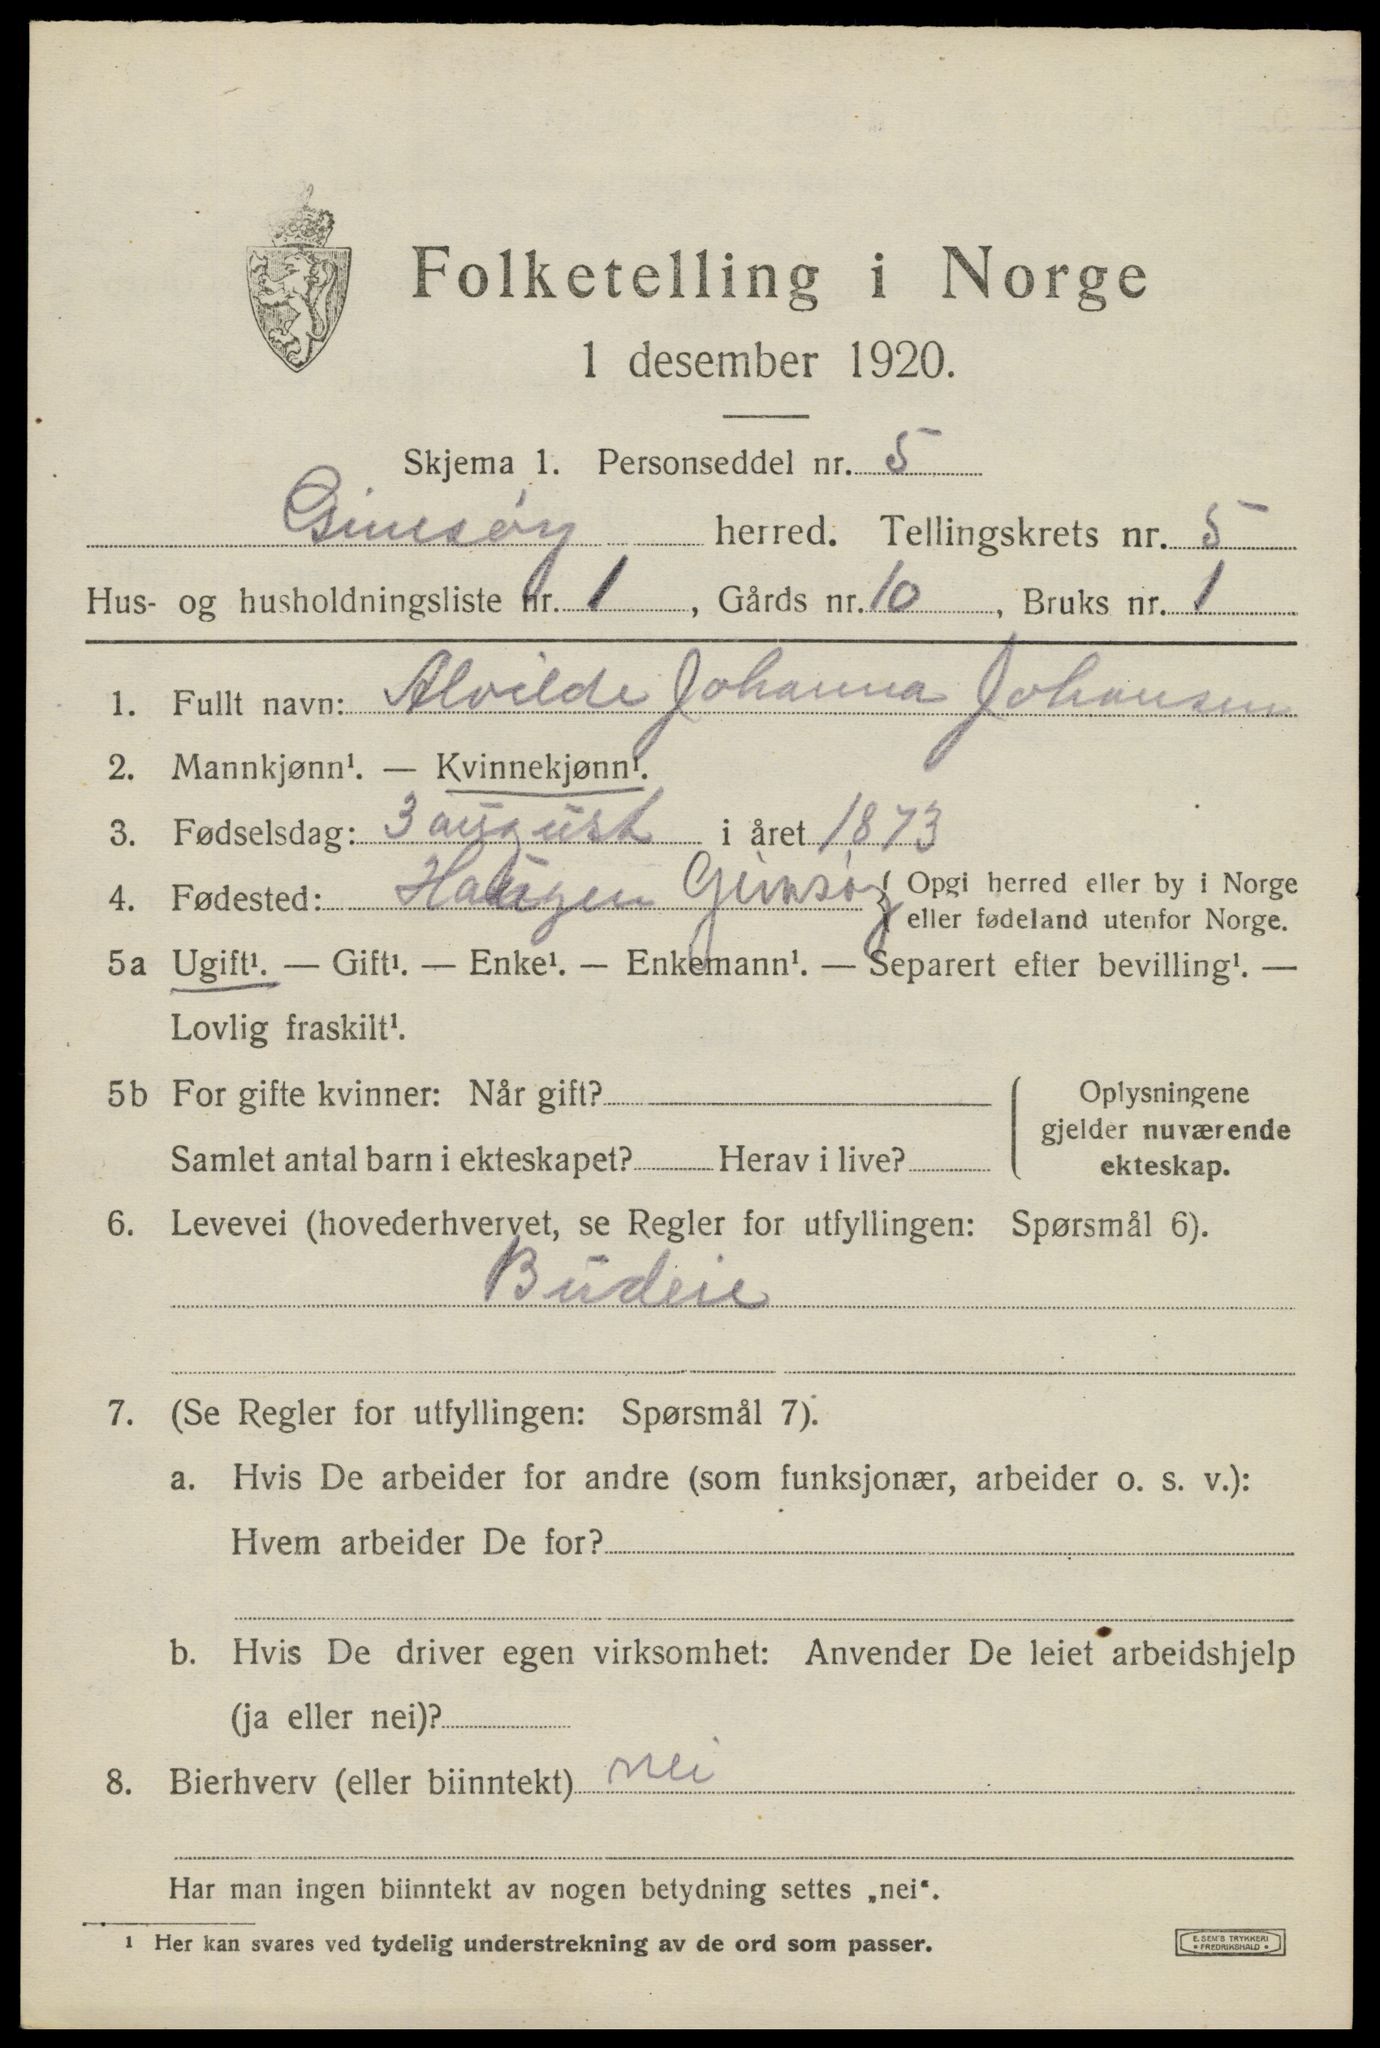 Folketelling i Norge
1 desember 1920.
Skjema 1. Personseddel nr. 5
Gimsøy herred. Tellingskrets nr. 5
Hus- og husholdningsliste nr. 1, Gårds nr. 10, Bruks nr. 1
1. Fullt navn: Alvilde Johanna Johansen
2. Mannkjønn¹. — Kvinnekjønn¹.
3. Fødselsdag: 3 august i året 1873
4. Fødested: Haugen Gimsøy { Opgi herred eller by i Norge
eller fødeland utenfor Norge.
5a Ugift¹. — Gift¹. — Enke¹. — Enkemann¹. — Separert efter bevilling¹. —
Lovlig fraskilt¹.
5b For gifte kvinner: Når gift?
Samlet antal barn i ekteskapet? Herav i live?
Oplysningene
gjelder nuværende
ekteskap.
6. Levevei (hovederhvervet, se Regler for utfyllingen: Spørsmål 6).
Budeie
7. (Se Regler for utfyllingen: Spørsmål 7).
a. Hvis De arbeider for andre (som funksjonær, arbeider o. s. v.):
Hvem arbeider De for?
b. Hvis De driver egen virksomhet: Anvender De leiet arbeidshjelp
(ja eller nei)?
8. Bierhverv (eller biinntekt) nei
Har man ingen biinntekt av nogen betydning settes „nei“.
¹ Her kan svares ved tydelig understrekning av de ord som passer.
E. SEM'S TRYKKERI
• FREDRIKSHALD •